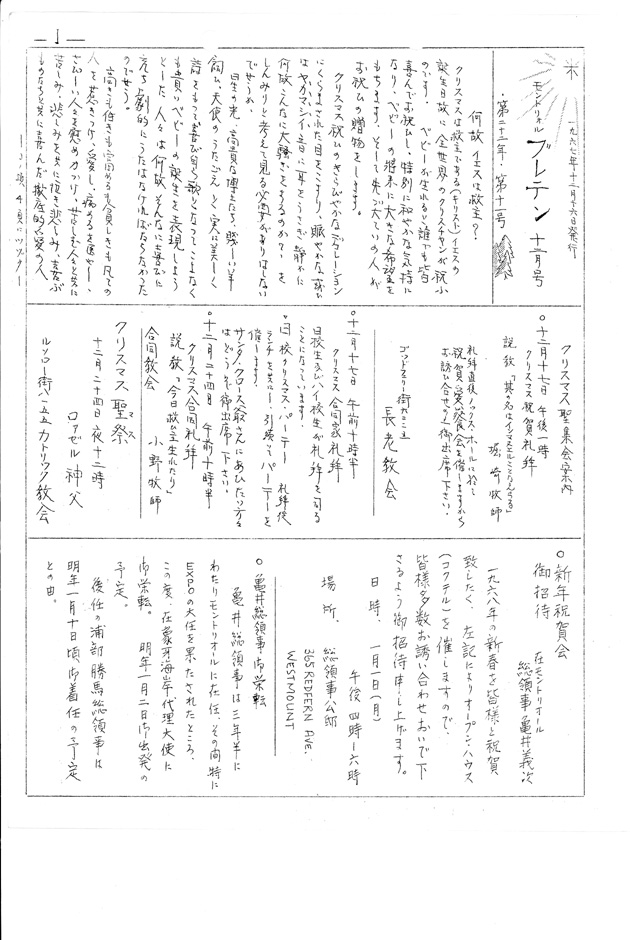 — 1 —
一九六七年十二月十六日発行
モントリオル ブレテン 十二月号
第二十二年・第十二号
何故イエスは救主?
クリスマスは救主である(キリスト)イエスの
誕生日故に全世界のクリスチャンが祝ふ
のです。 ベビーが生れると誰でも皆
喜んでお祝ひし、特別に和やかな気持に
なり、ベビーの将来に大きな希望を
もちます。そして先づ大ていの人が
お祝ひの贈物をします。
クリスマス祝ひのきらびやかなデコレーション
にくらまされた目をこすり、賑やかな
はやかマシイ音に耳をうさぎ、静かに
何故こんなに大騒ぎをするのか?を
しんみりと考えて見る必要がありはしない
でせうか。
星の光、高貴な博士たち、賤しい羊
飼ひ、天使のうたごえ、と実に美しく
詩をもって喜び自ら歌となってこよなく
も貴いベビーの誕生を表現しよう
とした人々は何故そんなに喜びに
充ち劇的にうたはなければならなかった
のでせう。
高きも低きも富めるも貧しきも凡ての
人を惹きつけ、愛し、病めるを医やし、
さびしい人々を慰め力づけ、苦しむ人々と共に
苦しみ、悲しみを共に抱き悲しみ、喜ぶ
ものたちと共に喜んだ徹底的な愛の人
4頁につヾく
クリスマス聖集会案内
○十二月十七日 午後一時
クリスマス祝賀礼拝
説教「其の名はインマヌエルととなえらる」
崎牧師
礼拝直後ノックス・ホールに於て
祝賀愛餐会を催しますから
お誘い合せの上御出席下さい。
長老教会
○十二月十七日 午前十時半
クリスマス合同家礼拝
日校生及びハイ校生が礼拝を司る
ことになっています。
○日校クリスマス・パーテー 礼拝後
ランチを共にし、引続いてパーテーを
催します。
サンタ・クロース爺さんにあひたい方々
はどうぞ御出席下さい。
○十二月二十四日 午前十時半
クリスマス合同礼拝
説教「今日救ひ主生れたり」
小野牧師
合同教会
クリスマス聖祭(マス)
十二月二十四日 夜十二時
ロァゼル神父
街八一五五カトリック教会
○新年祝賀会
御招待 在モントリオール
総領事 亀井義次
一九六八年の新春を皆様と祝賀
致したく、左記によりオープン・ハウス
(コクテル)を催しますので、
皆様多数お誘い合わせおいで下
さるよう御招待申し上げます。
日時、一月一日(月)
午後四時―六時
場所、 総領事公邸
365 REDFERN AVE.
WESTMOUNT
○亀井総領事御栄転
亀井総領事は三年半に
わたりモントリオールに在任、その間特に
EXPOの大任を果たされたところ、
この度、在象牙海岸代理大使に
御栄転。 明年一月二日御出発の
予定。
後任の浦部勝馬総領事は
明年一月十日頃御着任の予定
との由。